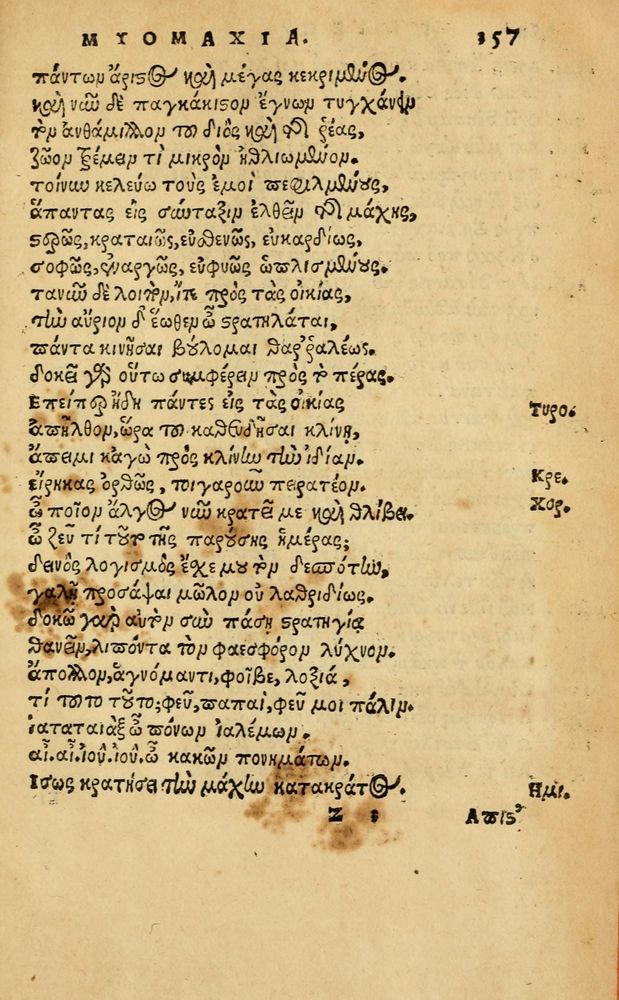 ΜΥΟΜΑΧΙΑ. 157
πάντων ἄριστος καὶ μέγας κεκριμένος.
καὶ νῦν δὲ παγκάκιστον ἔγνων τυγχάνειν
τὸν ἀνθάμιλλον τοῦ διὸς καὶ τῆς ῥέας,
ζῶον τρέμειν τὶ μικρὸν ἠθλιωμένον.
τοίνυν κελεύω τοὺς ἐμοὶ πεφιλμένους,
ἅπαντας εἰς σύνταξιν ἐλθεῖν τῆς μάχης,
στερρῶς, κραταιῶς, εὐσθενῶς, εὐκαρδίως,
σοφῶς, ἐναργῶς, εὐφυῶς ὡπλισμένους.
τανῦν δὲ λοιπὸν, ἴτε πρὸς τὰς οἰκίας,
τὴν αὔριον δ' ἕωθεν ὦ στρατηλάται,
πάντα κινῆσαι βούλομαι θαρῥαλέως.
δοκεῖ γὰρ οὕτω συμφέρειν πρὸς τὸ πέρας.
Επείπερ ἤδη πάντες εἰς τὰς οἰκίας Τυρο.
ἀπῆλθον, ὥρα τοῦ καθευδῆσαι κλίνῃ,
ἄπειμι κἀγὼ πρὸς κλίνην τὴν ἰδίαν.
εἴρηκας ὀρθῶς, τοιγαροῦν πειρατέον. Κρε.
ὦ ποῖον ἄλγος νῦν κρατεῖ με καὶ θλίβει. Χορ.
ὦ ζεῦ τί τοῦτο τῆς παρούσης ἡμέρας;
δεινὸς λογισμὸς ἔχε μου τὸν δεσπότην,
γαλῇ προσάψαι μῶλον οὐ λαθριδίως.
δοκῶ γὰρ αὐτὸν σὺν πάσῃ στρατηγίᾳ
θανεῖν, λιπόντα τὸν φαεσφόρον λύχνον.
ἄπολλον, ἁγνόμαντι, φοῖβε, λοξιά,
τί ποτο τοῦτο; φεῦ, παπαὶ, φεῦ μοι πάλιν.
ἰαταταιὰξ ὦ πόνων ἰαλέμων.
αἶ. αἶ. ἰοῦ. ἰοῦ. ὦ κακῶν πονημάτων.
Ισως κρατήσει τὴν μάχην κατακράτος. Ημι.
Z 3 Απιστ